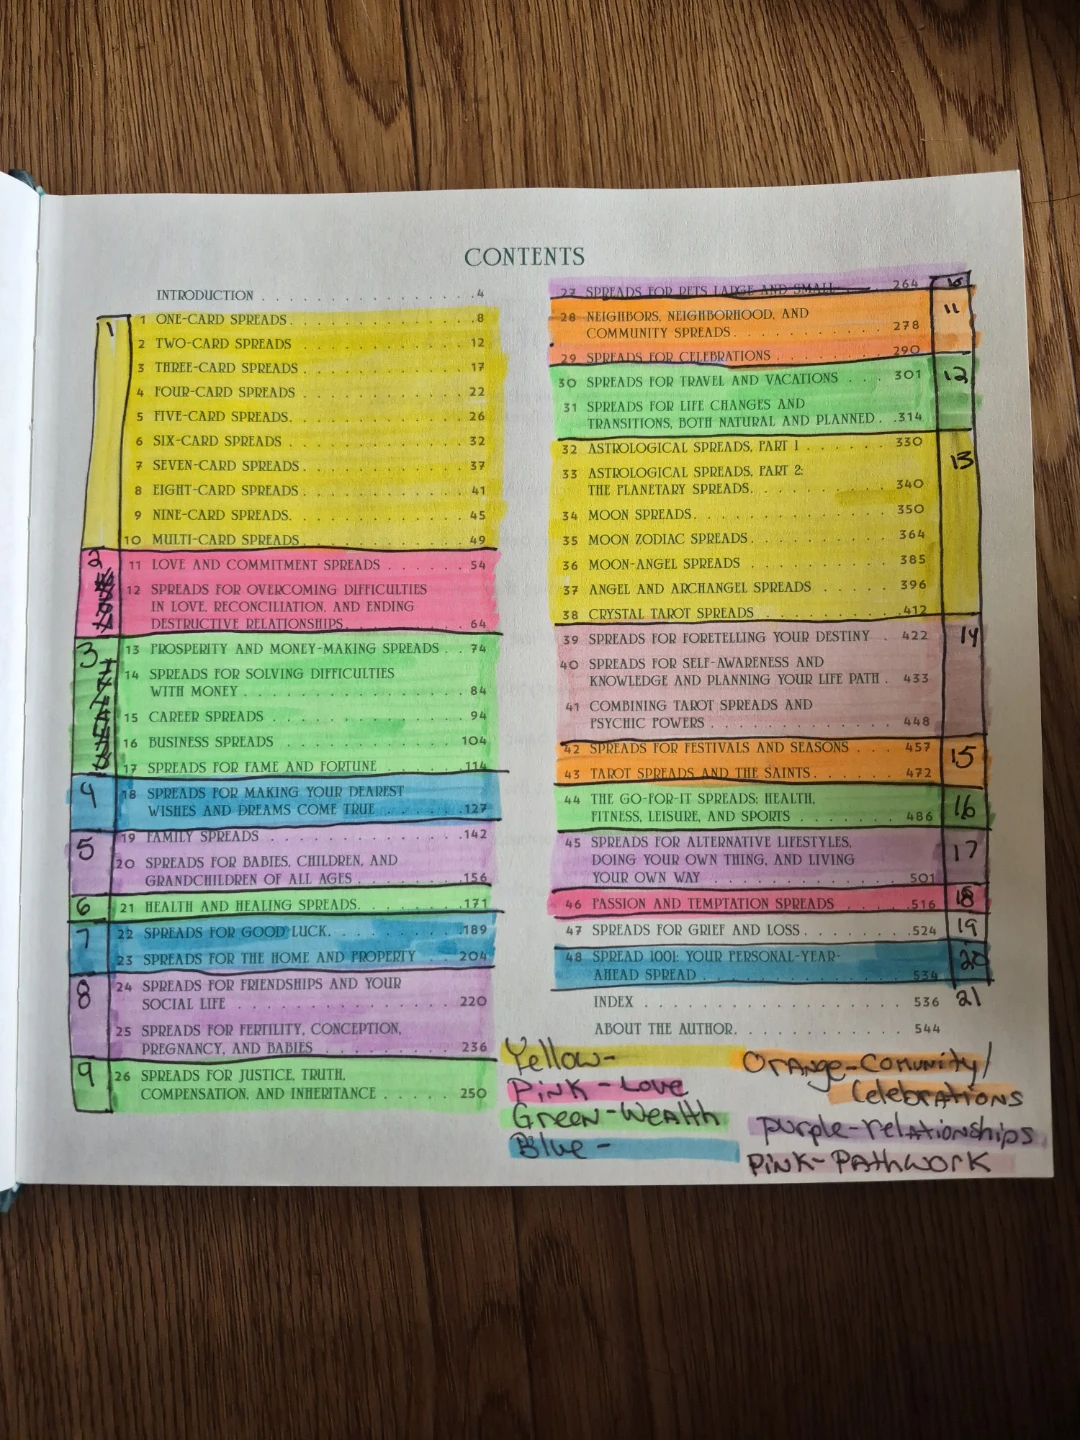 CONTENTS
INTRODUCTION . . . . . . . . . . . . . . . . . 4
1 ONE-CARD SPREADS . . . . . . . . . . . . . . 8
2 TWO-CARD SPREADS 12
3 THREE-CARD SPREADS . . . . . . . . . . . . . 17
4 FOUR-CARD SPREADS . . . . . . . . . . . . . 22
5 FIVE-CARD SPREADS . . . . . . . . . . . . . 26
6 SIX-CARD SPREADS . . . . . . . . . . . . . . 32
7 SEVEN-CARD SPREADS . . . . . . . . . . . . . 37
8 EIGHT-CARD SPREADS . . . . . . . . . . . . . 41
9 NINE-CARD SPREADS . . . . . . . . . . . . . 45
10 MULTI-CARD SPREADS . . . . . . . . . . . . 49
11 LOVE AND COMMITMENT SPREADS . . . . . . 54
12 SPREADS FOR OVERCOMING DIFFICULTIES
IN LOVE, RECONCILIATION, AND ENDING
DESTRUCTIVE RELATIONSHIPS . . . . . . . . . 64
13 PROSPERITY AND MONEY-MAKING SPREADS . . 74
14 SPREADS FOR SOLVING DIFFICULTIES
WITH MONEY . . . . . . . . . . . . . . . . 84
15 CAREER SPREADS . . . . . . . . . . . . . . 94
16 BUSINESS SPREADS . . . . . . . . . . . . . 104
17 SPREADS FOR FAME AND FORTUNE . . . . . . 114
18 SPREADS FOR MAKING YOUR DEAREST
WISHES AND DREAMS COME TRUE . . . . . . . 127
19 FAMILY SPREADS . . . . . . . . . . . . . . 142
20 SPREADS FOR BABIES, CHILDREN, AND
GRANDCHILDREN OF ALL AGES . . . . . . . . 156
21 HEALTH AND HEALING SPREADS. . . . . . . . 171
22 SPREADS FOR GOOD LUCK. . . . . . . . . . . 189
23 SPREADS FOR THE HOME AND PROPERTY . . . . 204
24 SPREADS FOR FRIENDSHIPS AND YOUR
SOCIAL LIFE . . . . . . . . . . . . . . . . 220
25 SPREADS FOR FERTILITY, CONCEPTION,
PREGNANCY, AND BABIES . . . . . . . . . . 236
26 SPREADS FOR JUSTICE, TRUTH,
COMPENSATION, AND INHERITANCE . . . . . 250
1
2
3
4
5
6
7
8
9
27 SPREADS FOR PETS LARGE AND SMALL 264
28 NEIGHBORS, NEIGHBORHOOD, AND
COMMUNITY SPREADS. . . . . . . . . . . . . 278
29 SPREADS FOR CELEBRATIONS . . . . . . . . 290
30 SPREADS FOR TRAVEL AND VACATIONS . . . 301
31 SPREADS FOR LIFE CHANGES AND
TRANSITIONS, BOTH NATURAL AND PLANNED . . 314
32 ASTROLOGICAL SPREADS, PART 1 . . . . . . 330
33 ASTROLOGICAL SPREADS, PART 2:
THE PLANETARY SPREADS. . . . . . . . . . . 340
34 MOON SPREADS. . . . . . . . . . . . . . . 350
35 MOON ZODIAC SPREADS . . . . . . . . . . . 364
36 MOON-ANGEL SPREADS . . . . . . . . . . . 385
37 ANGEL AND ARCHANGEL SPREADS . . . . . . 396
38 CRYSTAL TAROT SPREADS . . . . . . . . . . 412
39 SPREADS FOR FORETELLING YOUR DESTINY . 422
40 SPREADS FOR SELF-AWARENESS AND
KNOWLEDGE AND PLANNING YOUR LIFE PATH . 433
41 COMBINING TAROT SPREADS AND
PSYCHIC POWERS . . . . . . . . . . . . . . 448
42 SPREADS FOR FESTIVALS AND SEASONS . . . 457
43 TAROT SPREADS AND THE SAINTS . . . . . . 472
44 THE GO-FOR-IT SPREADS: HEALTH,
FITNESS, LEISURE, AND SPORTS . . . . . . 486
45 SPREADS FOR ALTERNATIVE LIFESTYLES,
DOING YOUR OWN THING, AND LIVING
YOUR OWN WAY . . . . . . . . . . . . . . 501
46 PASSION AND TEMPTATION SPREADS . . . . . 516
47 SPREADS FOR GRIEF AND LOSS. . . . . . . . 524
48 SPREAD 1001: YOUR PERSONAL-YEAR-
AHEAD SPREAD . . . . . . . . . . . . . . 534
INDEX . . . . . . . . . . . . . . . . . . 536
ABOUT THE AUTHOR. . . . . . . . . . . . . 544
10
11
12
13
14
15
16
17
18
19
20
21
Yellow-
Pink-Love
Green-Wealth
Blue-
Orange-Comunity/
Celebrations
Purple-relationships
Pink-Pathwork